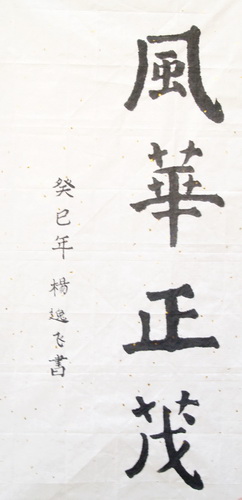 風華正茂
癸巳年楊逸飞書